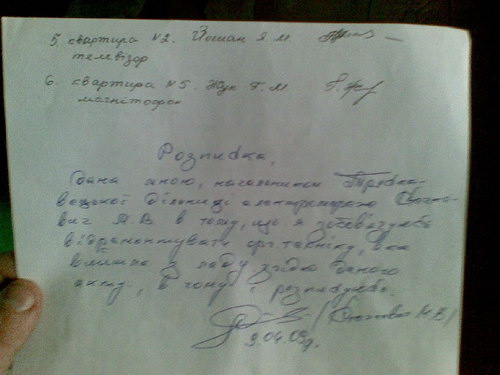 5. квартира №2. Йошан Я. М.
телевізор
6. квартира №5. Жук Г. М.
магнітофон
Розписка,
Дана мною, начальником
дільниці електромереж
М. В. в тому, що я зобов'язуюсь
відремонтувати оргтехніку, яка
вийшла з ладу згідно даного
акту, в чому і розписуюсь.
9.04.09р.